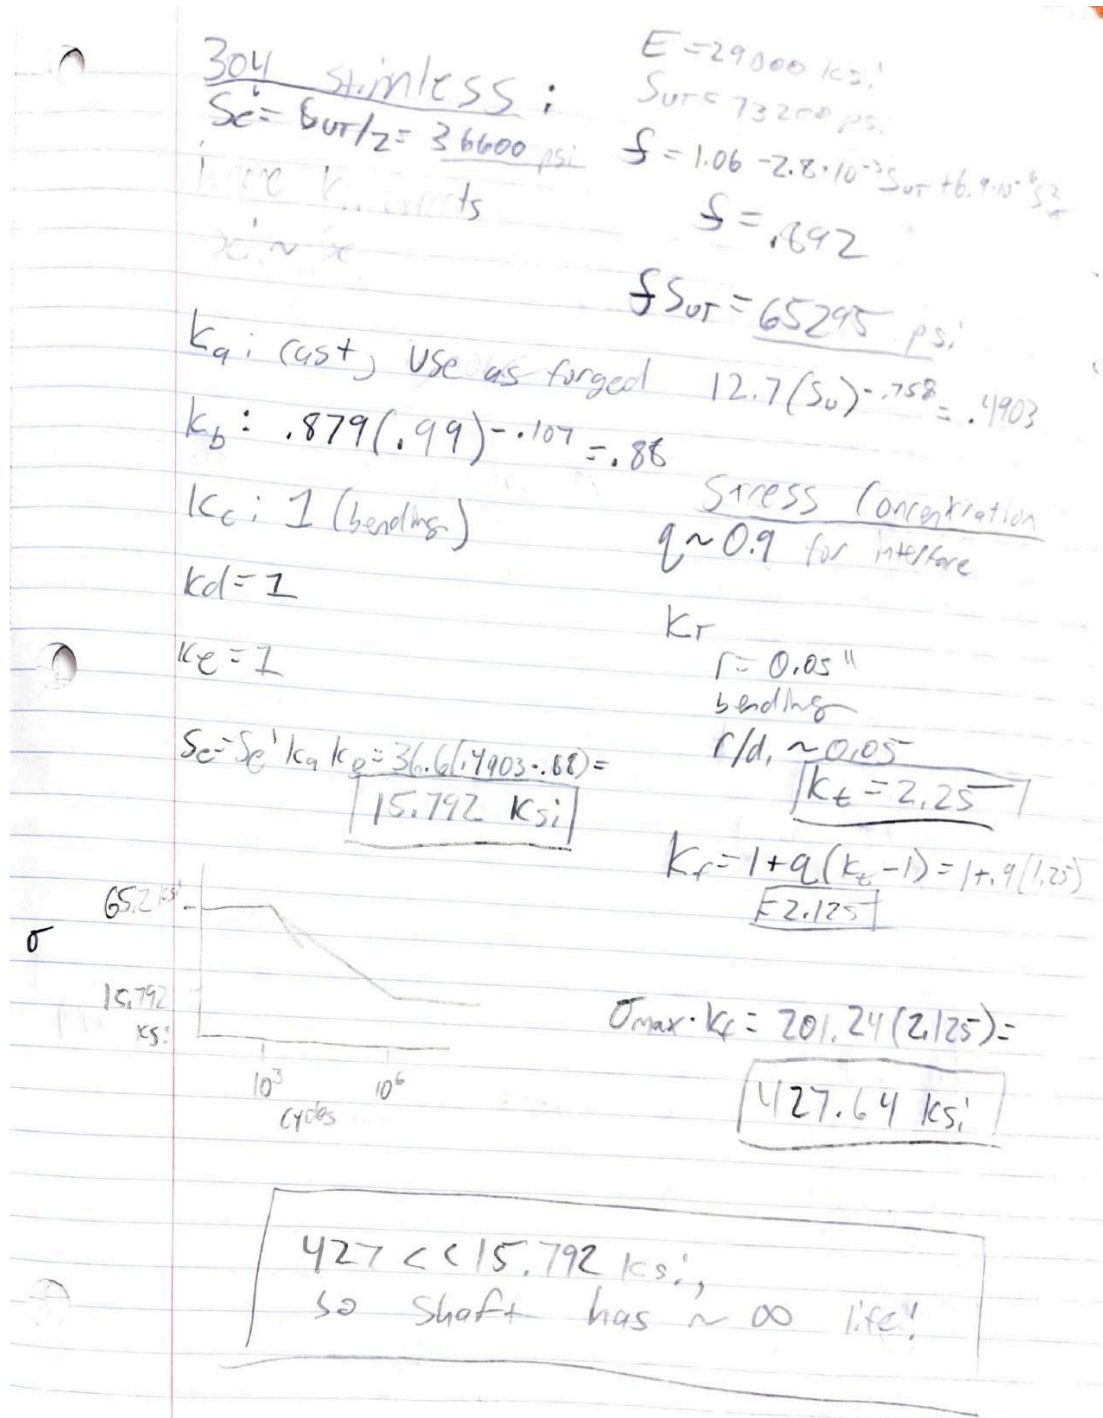 304 stainless:
Se' = SUT/2 = 36600 psi
E = 29000 ksi
SUT = 73200 psi
f = 1.06 - 2.8·10⁻³ SUT + 6.9·10⁻⁶ S²UT
f = .892
f SUT = 65295 psi
Ka: cast, use as forged 12.7(Su)^-.758 = .4903
Kb: .879(.99)^-.107 = .88
Kc: 1 (bending)
Kd = 1
Ke = 1
Se = Se' ka ke = 36.6(.4903·.88) =
15.792 Ksi
Stress Concentration
q ~ 0.9 for interface
KT
r = 0.05"
bending
r/d, ~ 0.05
kt = 2.25
Kf = 1 + q(kt - 1) = 1 + .9(1.25)
= 2.125
65.2 ksi
σ
15.792
ksi
10³ 10⁶
cycles
σmax · kf = 201.24(2.125) =
427.64 ksi
427 << 15.792 ksi,
so shaft has ~ ∞ life!